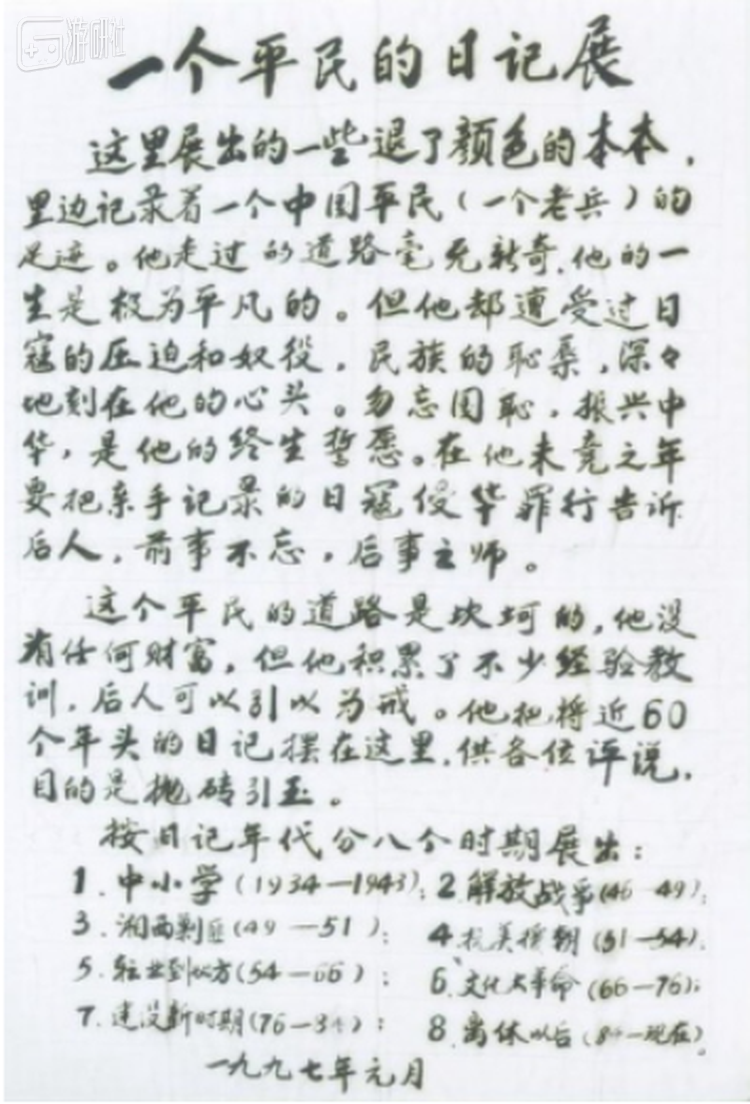 游研社
一个平民的日记展
这里展出的一些退了颜色的本本，
里边记录着一个中国平民（一个老兵）的
足迹。他走过的道路毫无新奇，他的一
生是极为平凡的。但他却遭受过日
寇的压迫和奴役，民族的耻辱，深々
地刻在他的心头。勿忘国耻，振兴中
华，是他的终生誓愿。在他未竟之年
要把亲手记录的日寇侵华罪行告诉
后人，前事不忘，后事之师。
这个平民的道路是坎坷的，他没
有任何财富，但他积累了不少经验教
训，后人可以引以为戒。他把将近60
个年头的日记摆在这里，供各位评说，
目的是抛砖引玉。
按日记年代分八个时期展出：
1. 中小学（1934—1943）；2. 解放战争（46—49）；
3. 湘西剿匪（49—51）；4. 抗美援朝（51—54）；
5. 转业到地方（54—66）；6. 文化大革命（66—76）；
7. 建设新时期（76—84）；8. 离休以后（84—现在）。
一九九七年元月